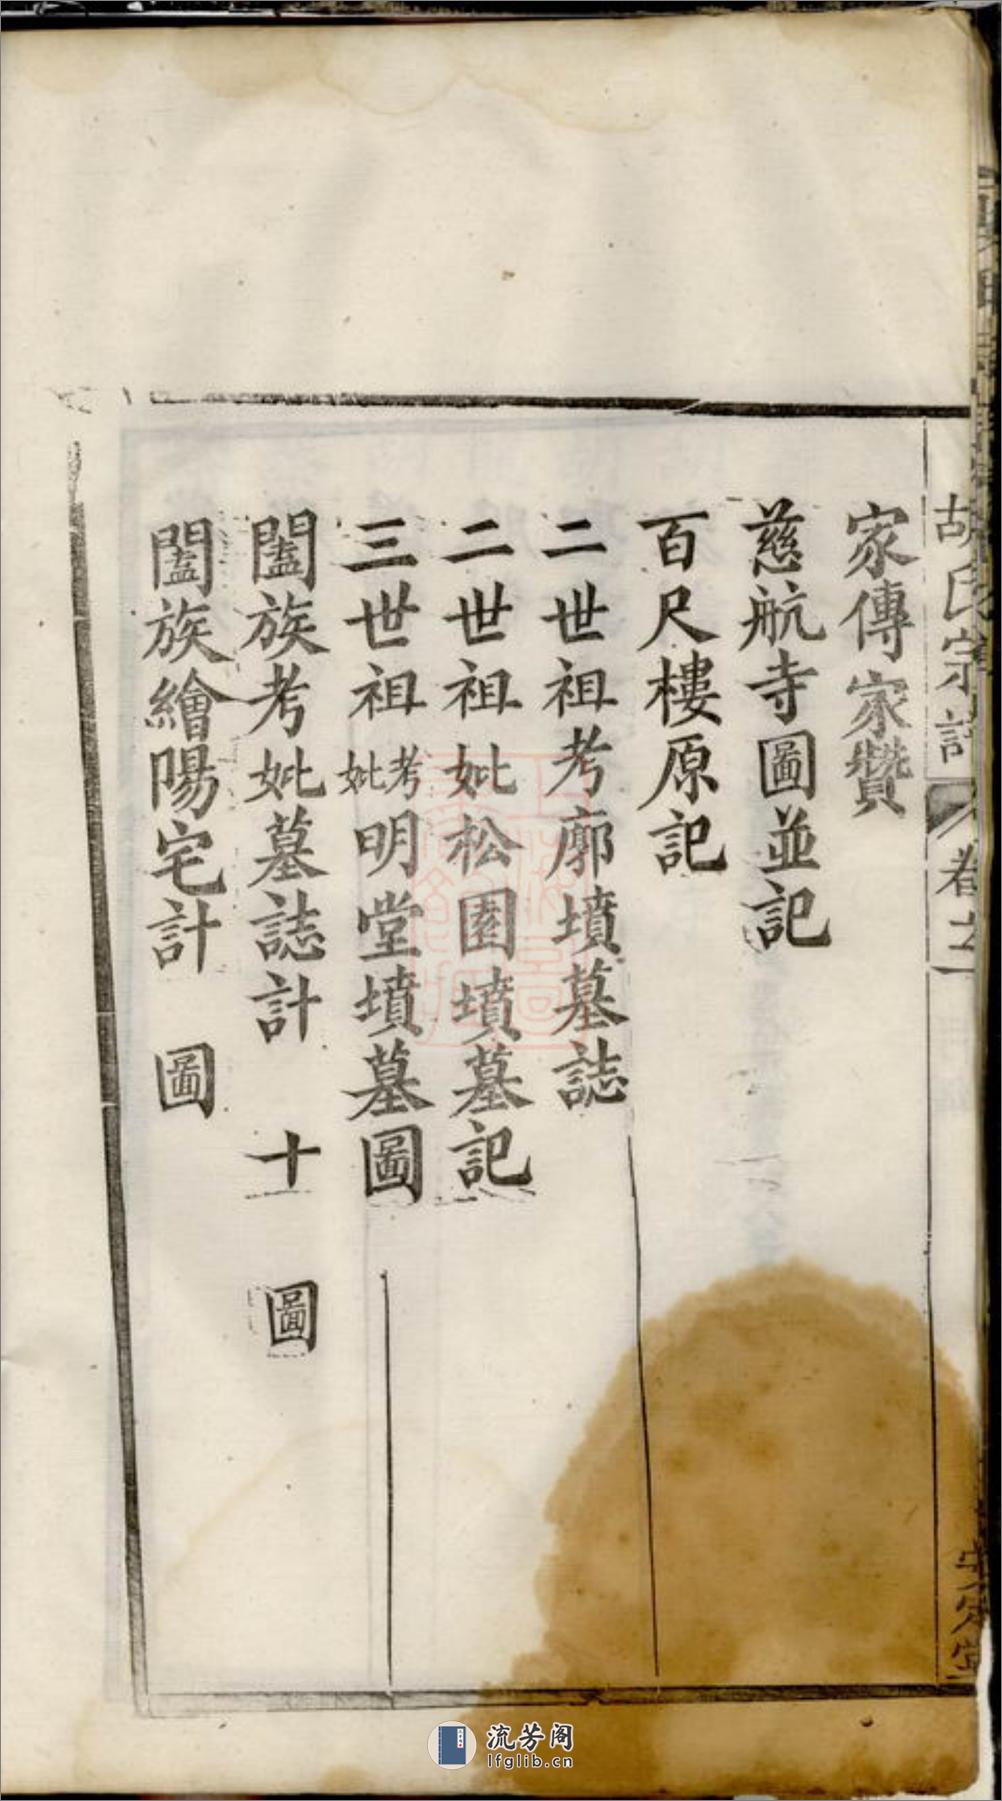 胡氏宗譜
卷之
家傳家贊
慈航寺圖並記
百尺樓原記
二世祖考廓墳墓誌
二世祖妣松園墳墓記
三世祖考妣明堂墳墓圖
闔族考妣墓誌計 十 圖
闔族繪陽宅計 圖
安定堂
流芳阁
lfglib.cn